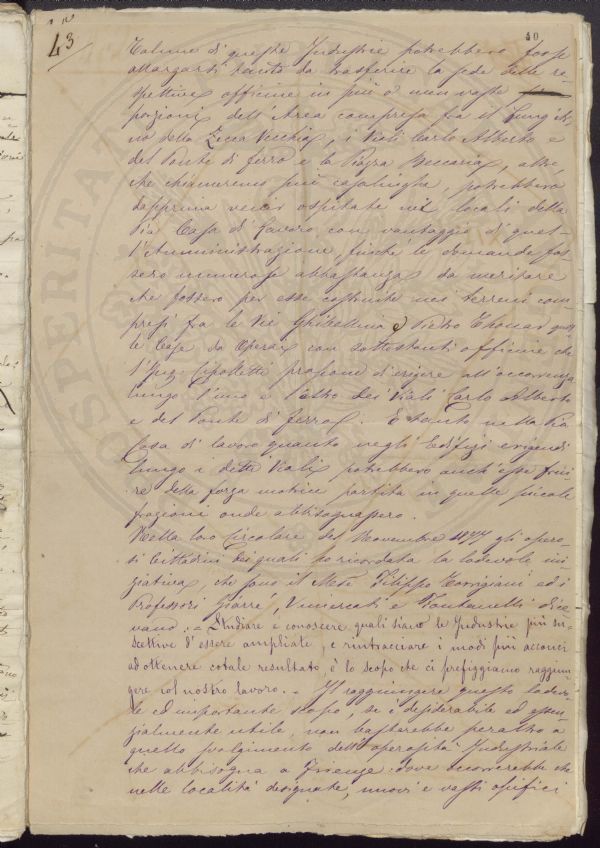 43
40
Talune di queste Industrie potrebbero forse
allargarsi tanto da trasferire la sede delle re-
spettive officine in più o men vaste
porzioni dell'Area compresa fra il Lung'Ar-
no della Zecca Vecchia, i Viali Carlo Alberto e
del Ponte di ferro e la Piazza Beccaria, altre,
che chiameremo più casalinghe, potrebbero
dapprima venir ospitate nei locali della
Pia Casa di Lavoro, con vantaggio di quel-
l'Amministrazione, finché le domande fos-
sero numerose abbastanza da meritare
che fossero per esse costruite nei terreni com-
presi fra le Vie Ghibellina e Pietro Thouar quel-
le Case da Operai con sottostanti officine che
l'Ing. propone di erigere all'occorrenza
lungo l'uno e l'altro dei Viali Carlo Alberto
e del Ponte di ferro. E tanto nella Pia
Casa di lavoro quanto negli Edifizi erigendi
lungo i detti Viali potrebbero anch'esse frui-
re della forza motrice partita in quelle piccole
frazioni onde abbisognassero.
Nella loro Circolare del Novembre 1877 gli opero-
si Cittadini dei quali ho ricordata la lodevole ini-
ziativa, che sono il Mse Filippo Torrigiani ed i
Professori Giarré, Vimercati e Fontanelli dice-
vano: - Studiare e conoscere quali siano le Industrie più su-
scettive d'essere ampliate, e rintracciare i modi più acconci
ad ottenere cotale resultato, è lo scopo che ci prefiggiamo raggiun-
gere col nostro lavoro. - Il raggiungere questo lodevo-
le ed importante scopo, se è desiderabile ed essen-
zialmente utile, non basterebbe peraltro a
quello svolgimento dell'operosità Industriale
che abbisogna a Firenze dove occorrerebbe che
nelle località designate, nuovi e vasti opifici